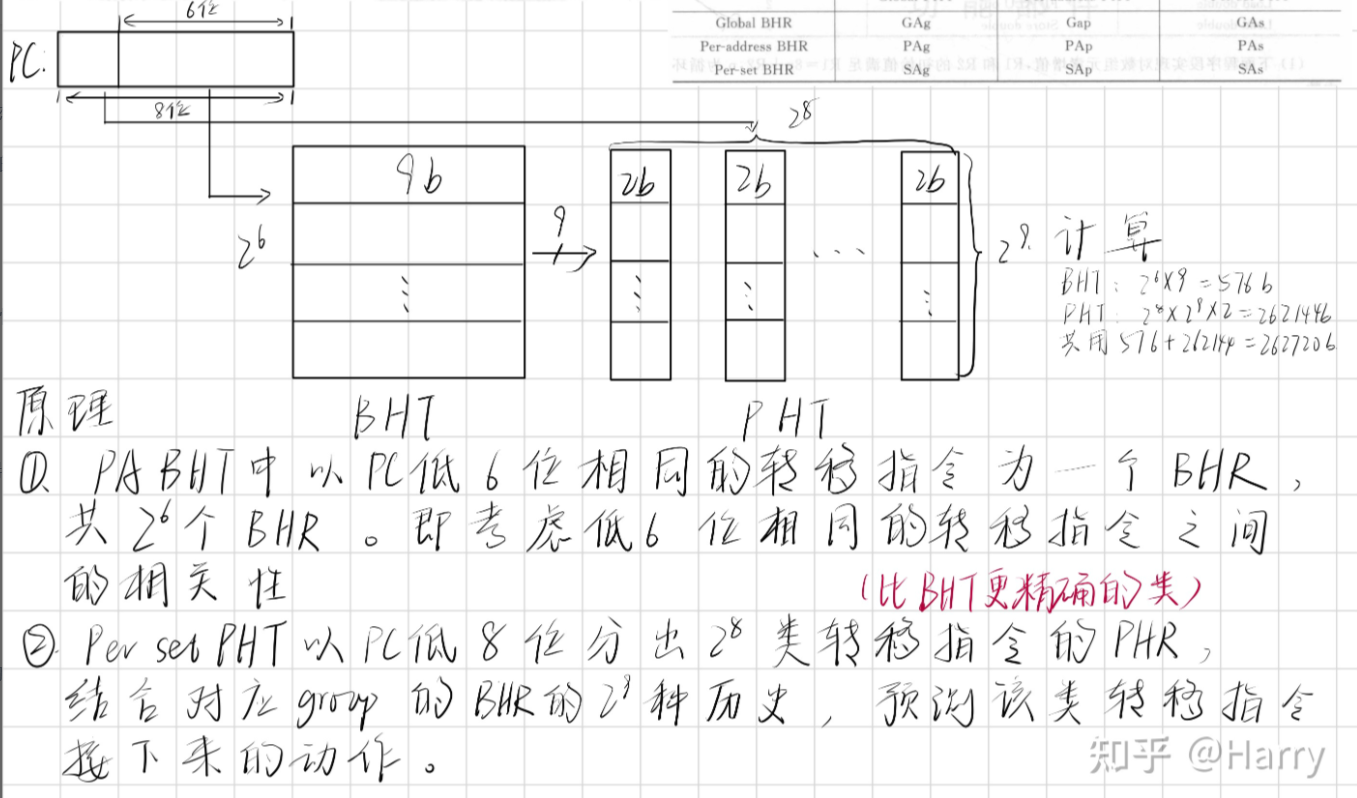 6位
Global BHR GAg Gap GAs
PC:
Per-address BHR PAg PAp PAs
Per-set BHR SAg SAp SAs
8位
2⁸
9b 2b 2b 2b
9
2⁶ ... 2⁹ 计算
BHT: 2⁶×9=576b
PHT: 2⁸×2⁹×2=262144b
共用 576+262144=262720b
原理 BHT PHT
①. PA BHT中以PC低6位相同的转移指令为一个BHR,
共2⁶个BHR。即考虑低6位相同的转移指令之间
的相关性
(比BHT更精确的类)
②. Per set PHT以PC低8位分出2⁸类转移指令的PHR,
结合对应group的BHR的2⁹种历史,预测该类转移指令
接下来的动作。
知乎 @Harry